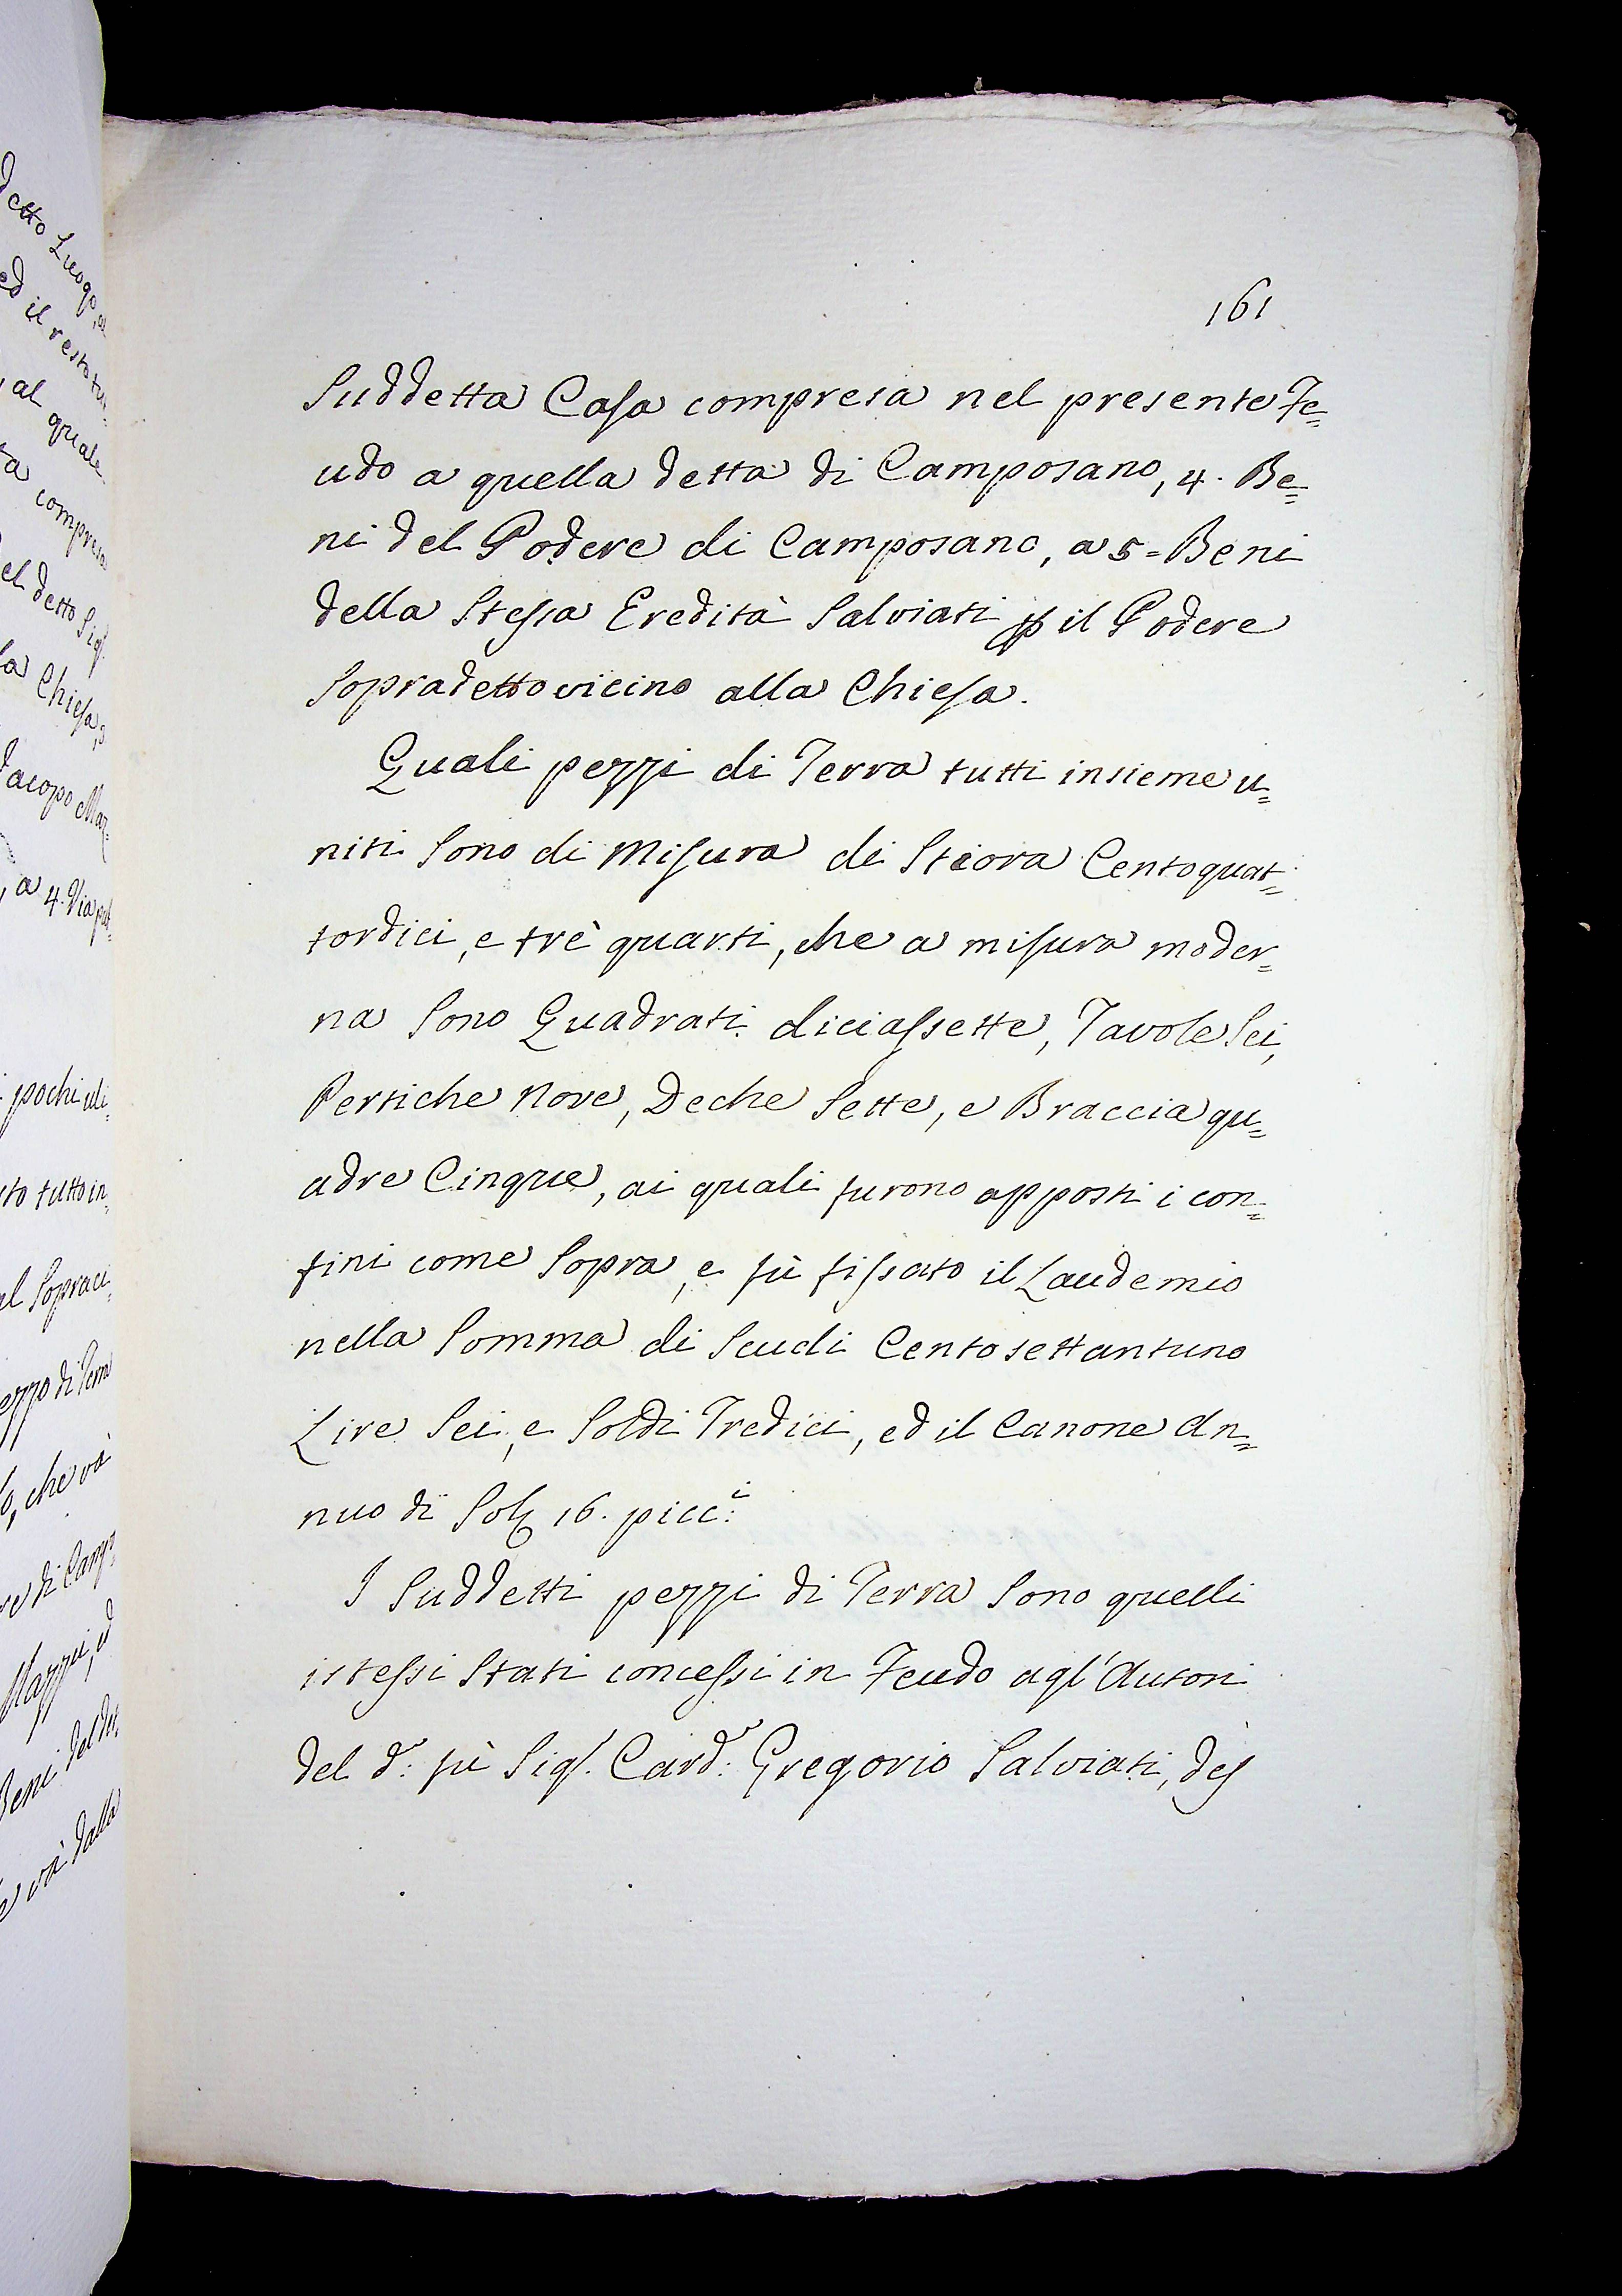 161
Suddetta Casa compresa nel presente Fe=
udo a quella detta di Camposano, 4. Be=
ni del Podere di Camposano, a 5= Beni
della Stessa Eredità Salviati ꝑ il Podere
Sopradetto vicino alla Chiesa.
Quali pezzi di Terra tutti insieme u=
niti Sono di Misura di Stiora Centoquat=
tordici, e trè quarti, che a misura moder=
na Sono Quadrati diciassette, Tavole Sei,
Pertiche Nove, Deche Sette, e Braccia qu=
adre Cinque, ai quali furono apposti i con=
fini come Sopra, e fù fissato il Laudemio
nella Somma di Scudi Centosettantuno
Lire Sei, e Soldi Tredici, ed il Canone An=
nuo di 16. picc:i
I Suddetti pezzi di Terra Sono quelli
istessi Stati concessi in Feudo agl'Autori
del d:o fù Sig.r Card:e Gregorio Salviati,
detto Luogo, a
ed il resto tu=
, al quale
compresa
el detto Sig.r
la Chiesa, 3
Jacopo Maz=
, a 4. Via pub=
pochi uli=
to tutto in=
el Sopraci=
ezzo di Terra
o, che và
re di Camp=
Mazzei, ed
Beni del
e và dalla